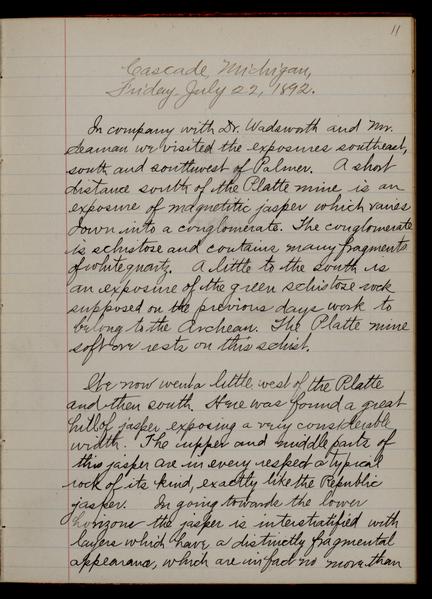 11
Cascade, Michigan,
Friday July 22, 1892.
In company with Dr. Wadsworth and Mr.
Seaman we visited the exposures southeast,
south and southwest of Palmer. A short
distance south of the Platte mine is an
exposure of magnetitic jasper which varies
down into a conglomerate. The conglomerate
is schistose and contains many fragments
of white quartz. A little to the south is
an exposure of the green schistose rock
supposed on the previous days work to
belong to the Archean. The Platte mine
soft ore rests on this schist.
We now went a little west of the Platte
and then south. Here was found a great
hill of jasper exposing a very considerable
width. The upper and middle parts of
this jasper are in every respect a typical
rock of its kind, exactly like the Republic
jasper. In going towards the lower
horizons the jasper is interstratified with
layers which have a distinctly fragmental
appearance, which are in fact no more than